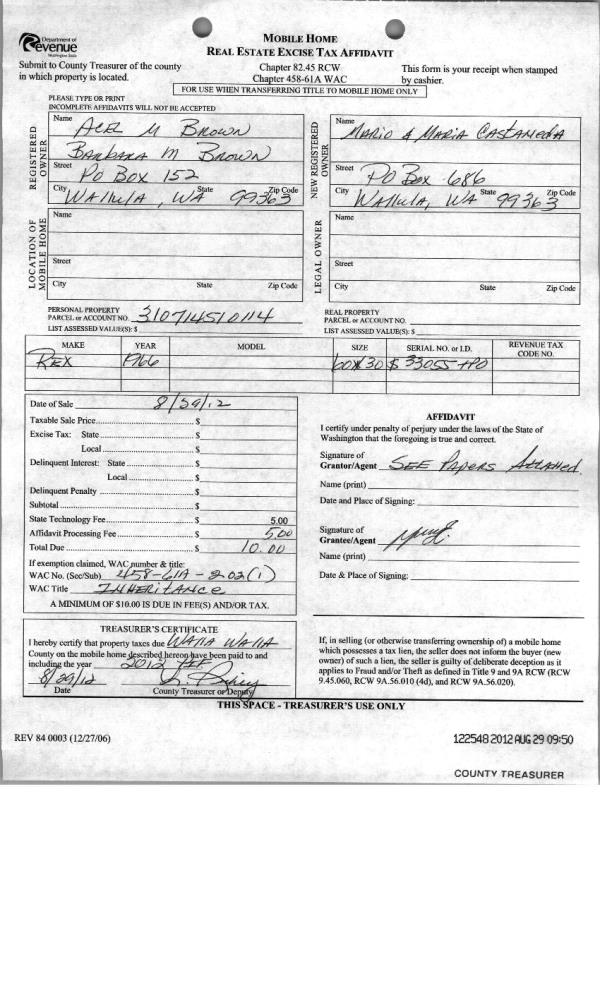 Department of
Revenue
Washington State
MOBILE HOME
REAL ESTATE EXCISE TAX AFFIDAVIT
Submit to County Treasurer of the county
in which property is located.
Chapter 82.45 RCW
Chapter 458-61A WAC
This form is your receipt when stamped
by cashier.
FOR USE WHEN TRANSFERRING TITLE TO MOBILE HOME ONLY
PLEASE TYPE OR PRINT
INCOMPLETE AFFIDAVITS WILL NOT BE ACCEPTED
REGISTERED
OWNER
Name
M Brown
Barbara M Brown
Street
PO Box 152
City State Zip Code
Wallula, WA 99363
NEW REGISTERED
OWNER
Name
Mario & Maria Castaneda
Street
PO Box 686
City State Zip Code
Wallula, WA 99363
LOCATION OF
MOBILE HOME
Name
Street
City State Zip Code
LEGAL OWNER
Name
Street
City State Zip Code
PERSONAL PROPERTY
PARCEL or ACCOUNT NO. 310714510114
LIST ASSESSED VALUE(S): $
REAL PROPERTY
PARCEL or ACCOUNT NO.
LIST ASSESSED VALUE(S): $
MAKE YEAR MODEL SIZE SERIAL NO. or I.D. REVENUE TAX
CODE NO.
REX 1966 60X30
Date of Sale 8/29/12
Taxable Sale Price $
Excise Tax: State $
Local $
Delinquent Interest: State $
Local $
Delinquent Penalty $
Subtotal $
State Technology Fee $ 5.00
Affidavit Processing Fee $ 5.00
Total Due $ 10.00
If exemption claimed, WAC number & title:
WAC No. (Sec/Sub) 458-61A-202(1)
WAC Title Inheritance
A MINIMUM OF $10.00 IS DUE IN FEE(S) AND/OR TAX.
AFFIDAVIT
I certify under penalty of perjury under the laws of the State of
Washington that the foregoing is true and correct.
Signature of
Grantor/Agent See Papers Attached
Name (print)
Date and Place of Signing:
Signature of
Grantee/Agent
Name (print)
Date & Place of Signing:
TREASURER'S CERTIFICATE
I hereby certify that property taxes due Walla Walla
County on the mobile home described hereon have been paid to and
including the year 2012
8/29/12
Date County Treasurer or Deputy
If, in selling (or otherwise transferring ownership of) a mobile home
which possesses a tax lien, the seller does not inform the buyer (new
owner) of such a lien, the seller is guilty of deliberate deception as it
applies to Fraud and/or Theft as defined in Title 9 and 9A RCW (RCW
9.45.060, RCW 9A.56.010 (4d), and RCW 9A.56.020).
THIS SPACE - TREASURER'S USE ONLY
REV 84 0003 (12/27/06)
122548 2012 AUG 29 09:50
COUNTY TREASURER